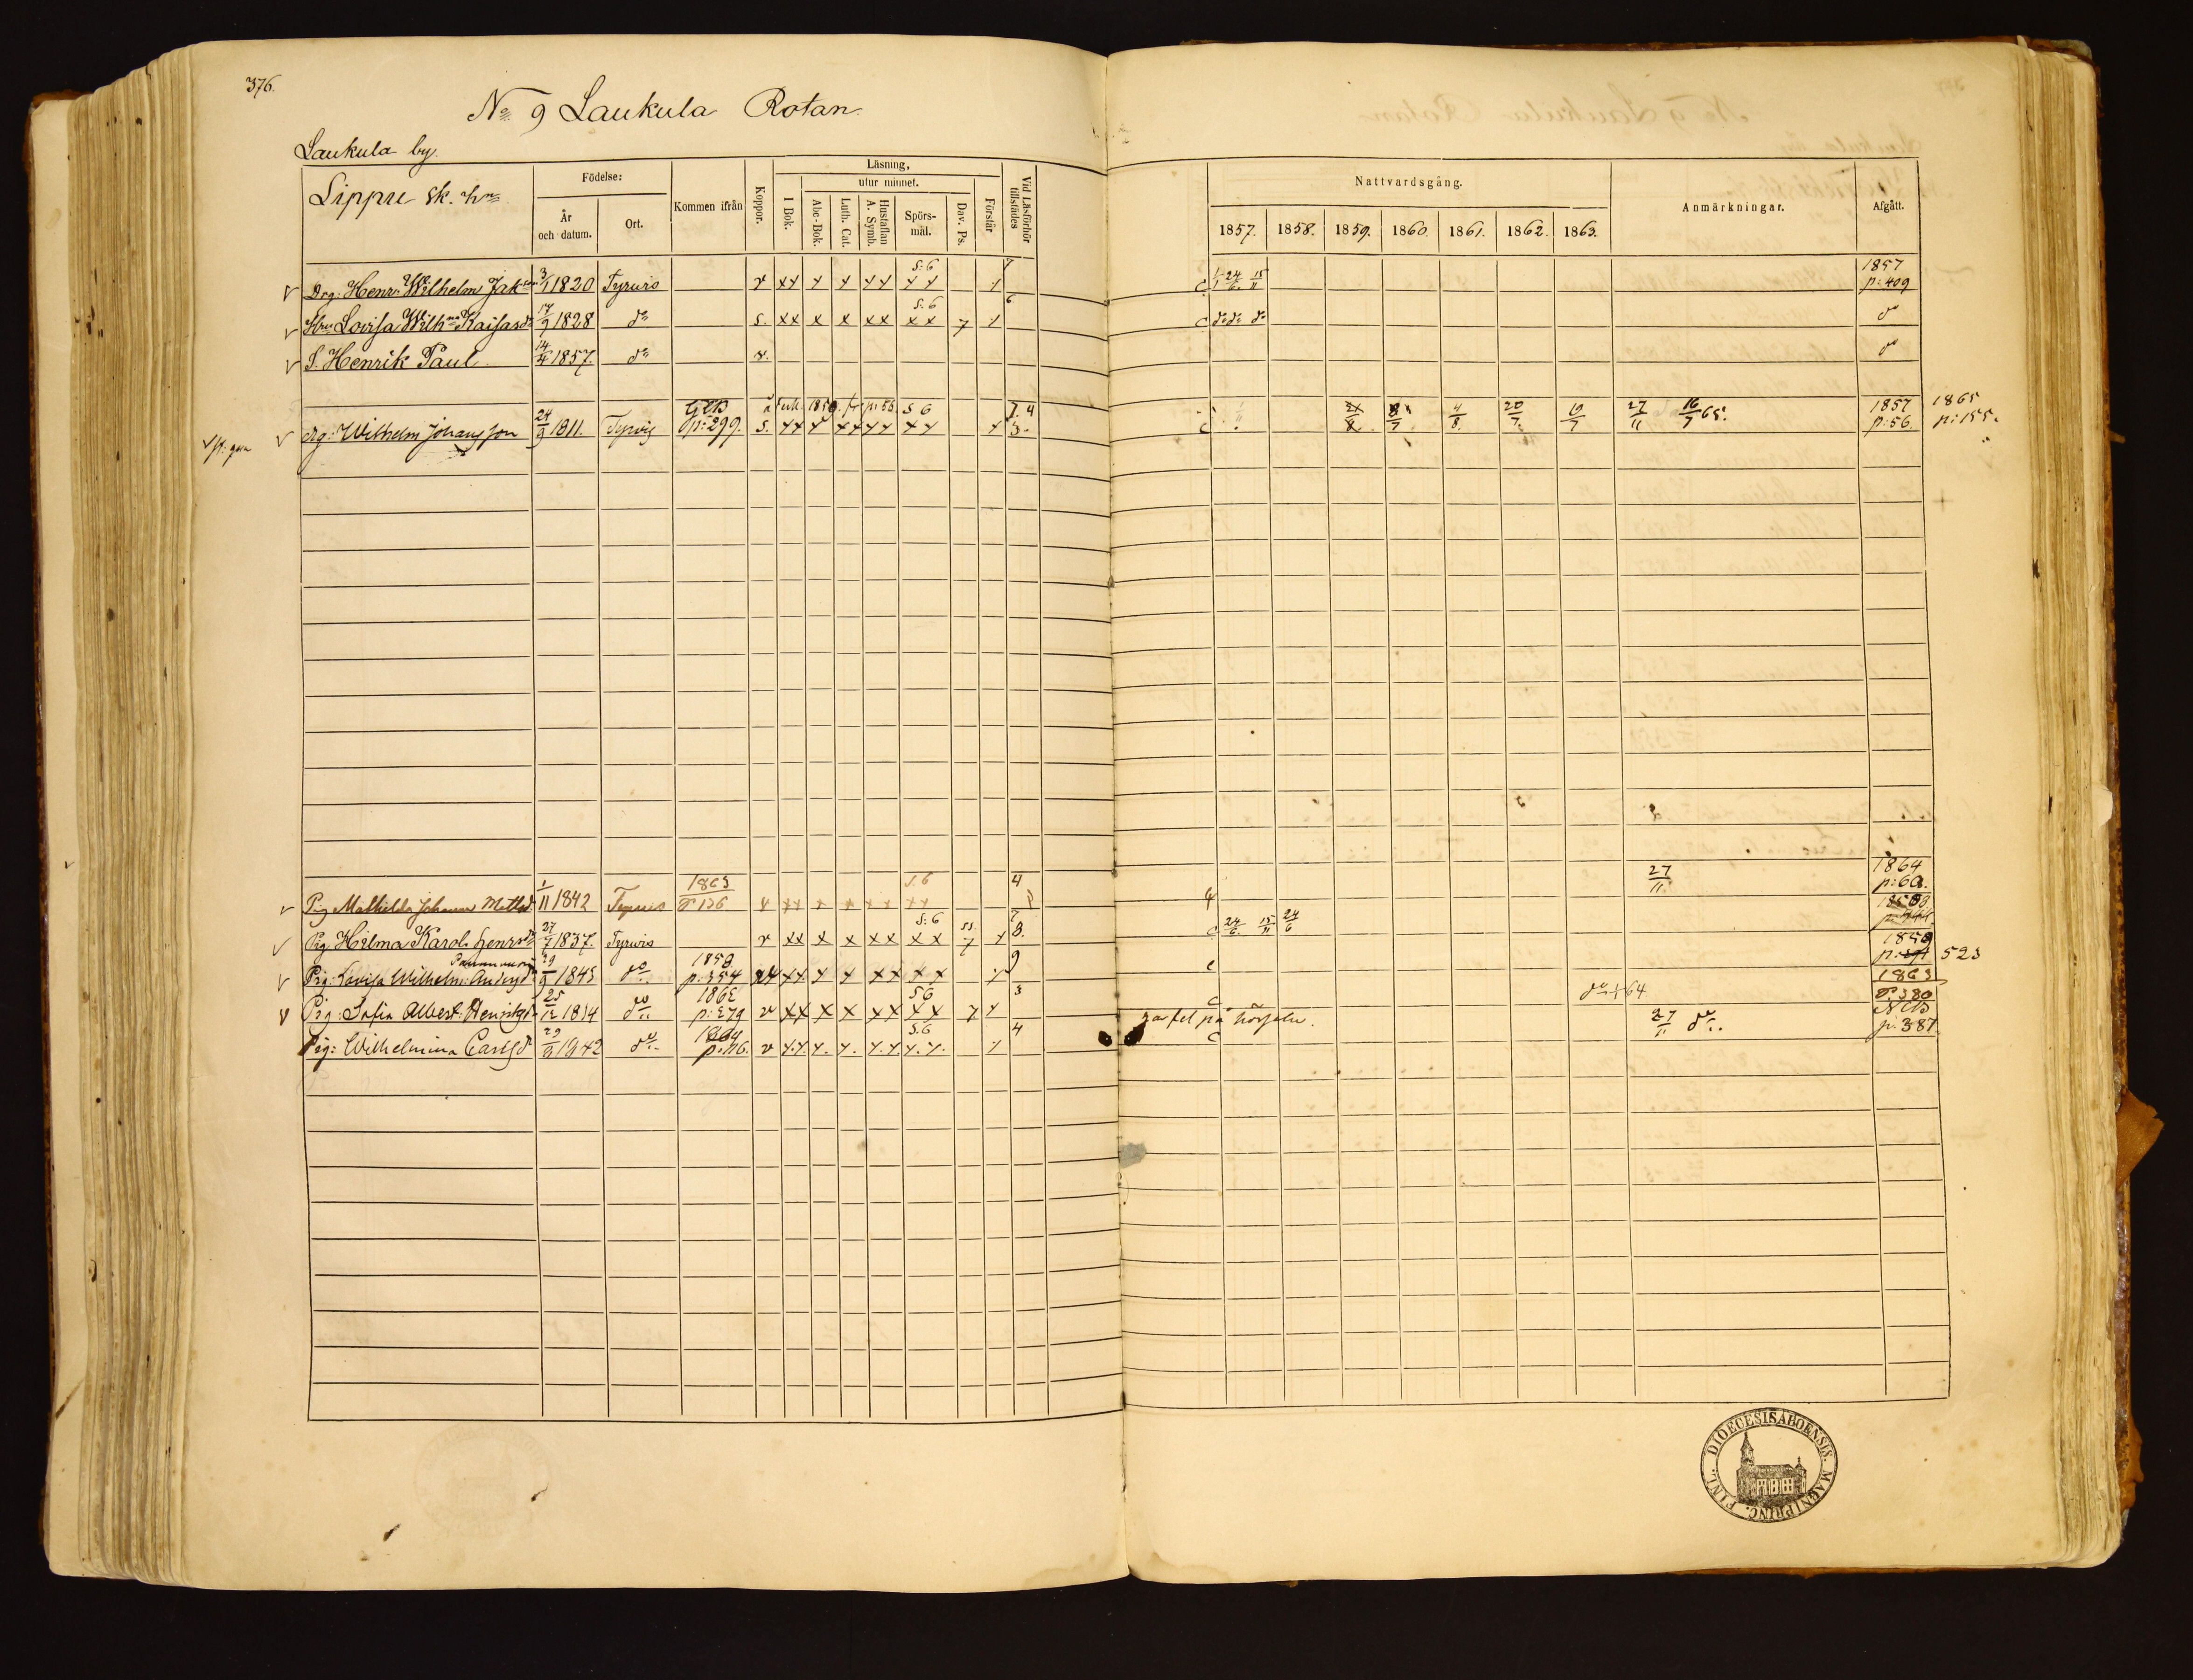 376.
No 9 Laukula Rotan.
Laukula by.
Lippu sk. hn
Födelse:
År och datum.
Ort.
Kommen ifrån
Koppor.
Läsning,
I Bok.
utur minnet.
Abc-Bok.
Luth. Cat.
Hustaflan A. Symb.
Spörsmål.
Dav. Ps.
Förstår
Vid Läsförhör tillstädes
Nattvardsgång.
1857. 1858. 1859. 1860. 1861. 1862. 1863.
Anmärkningar.
Afgått.
Drg: Henr: Wilhelm Jakson 3/1 1820 Tyrvis v xx x x xx S:6 xx x 7 c 24/6 15/11 1857 p: 409
Hru Lovisa Wilhna Kaisasdr 17/9 1828 do S. xx x x xx S:6 xx 7 x 6 c do do do do
S. Henrik Paul 14/4 1857. do v. do
Drg: Wilhelm Johansson 24/9 1811. Tyrvis p: 299. S. xx x xx xx S 6 xx x 7. 4 3. c 8/7 4/8. 20/7. 19/7 27/11 16/7 65. 1857 p: 56. 1865 p: 155.
Pig Mathilda Johanna Mattsd 1/11 1842 Tyrvis 1863 P 136 v xx x x xx S.6 xx 4 27/11 1864 p: 60.
Pig. Hilma Karol. Henrsdr 27/7 1837. Tyrvis v xx x x xx S:6 xx 7 x 7 8. c 24/6. 15/11 24/6
Pig: Lovisa Wilhelm: Andersdr 29/9 1843 do 1858 p: 354 xx x x xx xx x 9 c 1858 523
Pig: Sofia Albert: Henriksdr 25/12 1834 do 1862 p: 279 v xx x x xx S6 xx 7 x 3 c do 64 1863 P. 380
Pig: Wilhelmina Carlsd 29/3 1842 do 1864 p: 116. v x.x. x. x. x.x. S.6 x.x. x 4 har fel på hörseln. c 27/11 do p. 387.
FINL. DIOECESIS ABOENSIS. MAGNI PRINC.